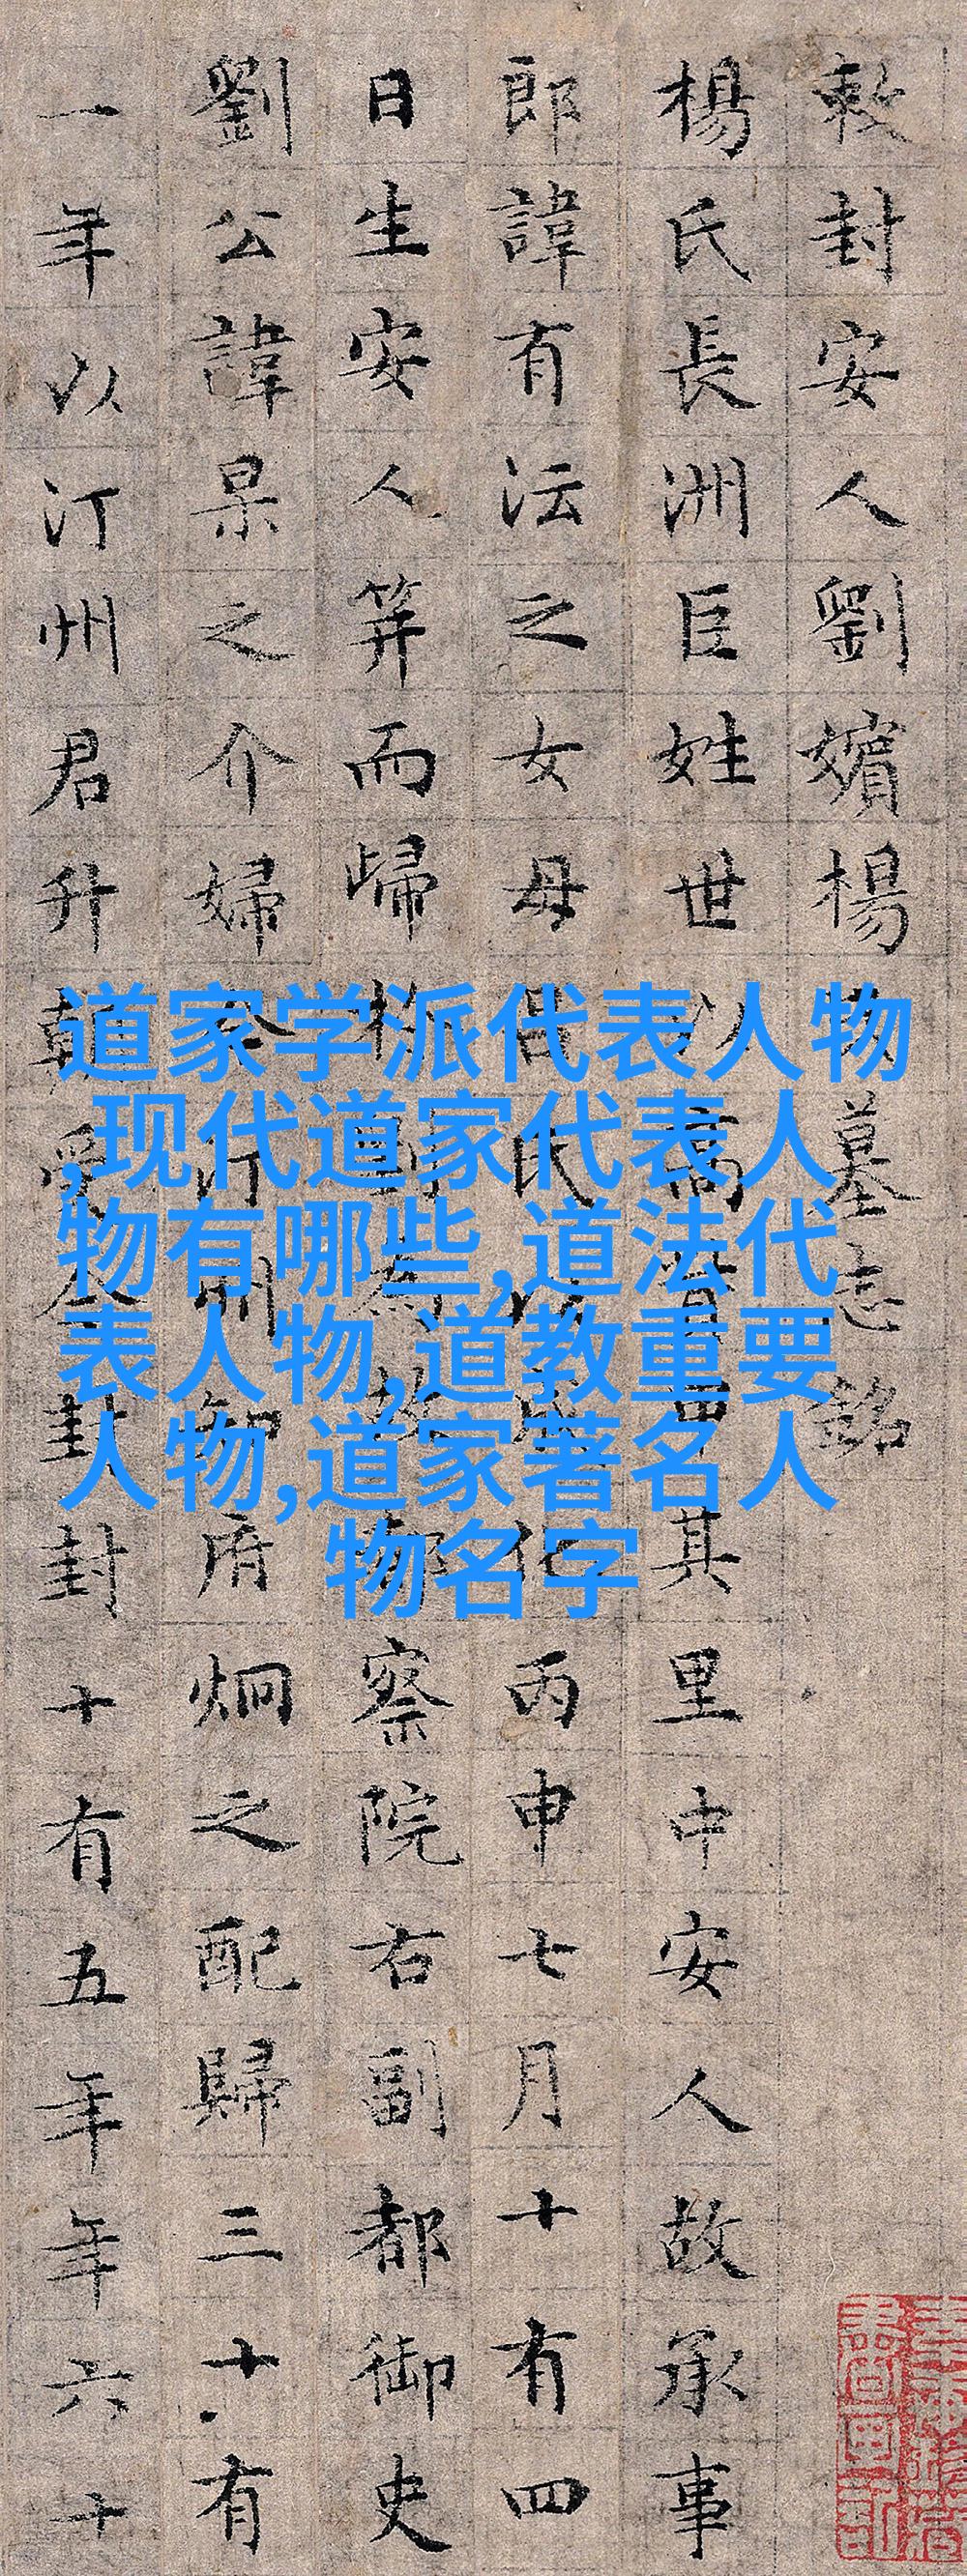 敕封安人劉嬪楊墓志銘
楊氏長洲巨姓世以高其里中安人故承事
郎諱有沄之女母呂氏以成化丙申七月十有四
日生安人筓而歸故察院右副都御史
劉公諱杲之介婦今汀州知府炯之配歸三十有
一年以汀州君升朝受封封十有五年年六十
道家学派代表人物
,现代道家代表人
物有哪些,道法代
表人物,道教重要
人物,道家著名人
物名字